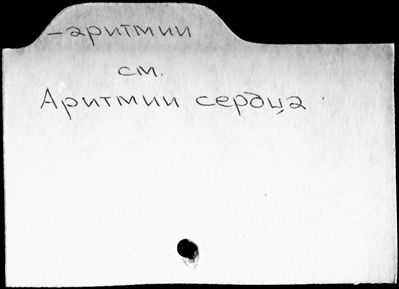 -аритмии
см.
Аритмии сердца